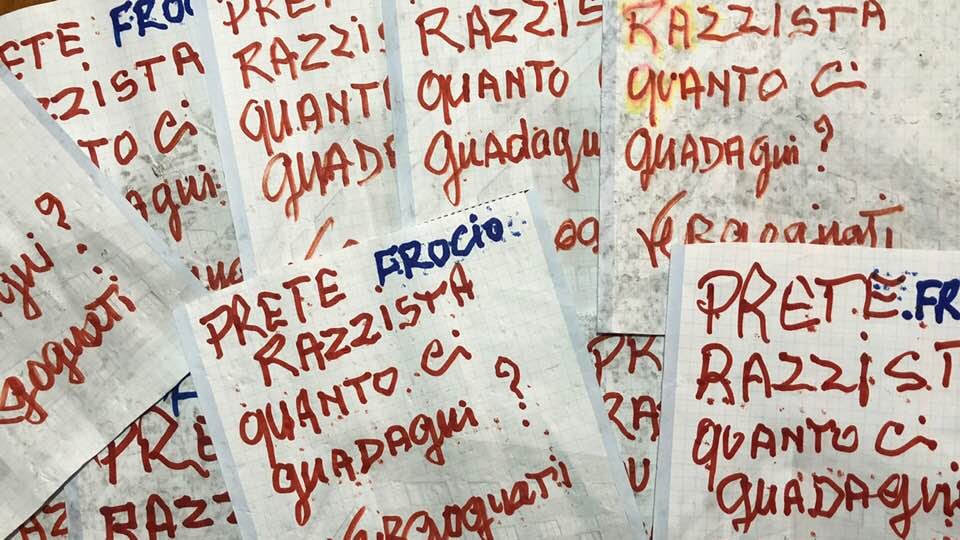 ETE FROCI
ZZISTA
TO Ci
Aqui
PRETE
RAZZIS
QUANTI
GUADA
RAZZIS
QUANTO
GUADAqu
RAZZISTA
QUANTO Ci
GUADAGUi ?
VERGOGNATI
gui ?
gognati
PRETE FROCIO
RAZZISTA
QUANTO Ci
GUADAGUi ?
VERGOGNATI
PRE
RAZZ
PR
RA
U
PRETE FR
RAZZIST
QUANTO Ci
GUADAGUi